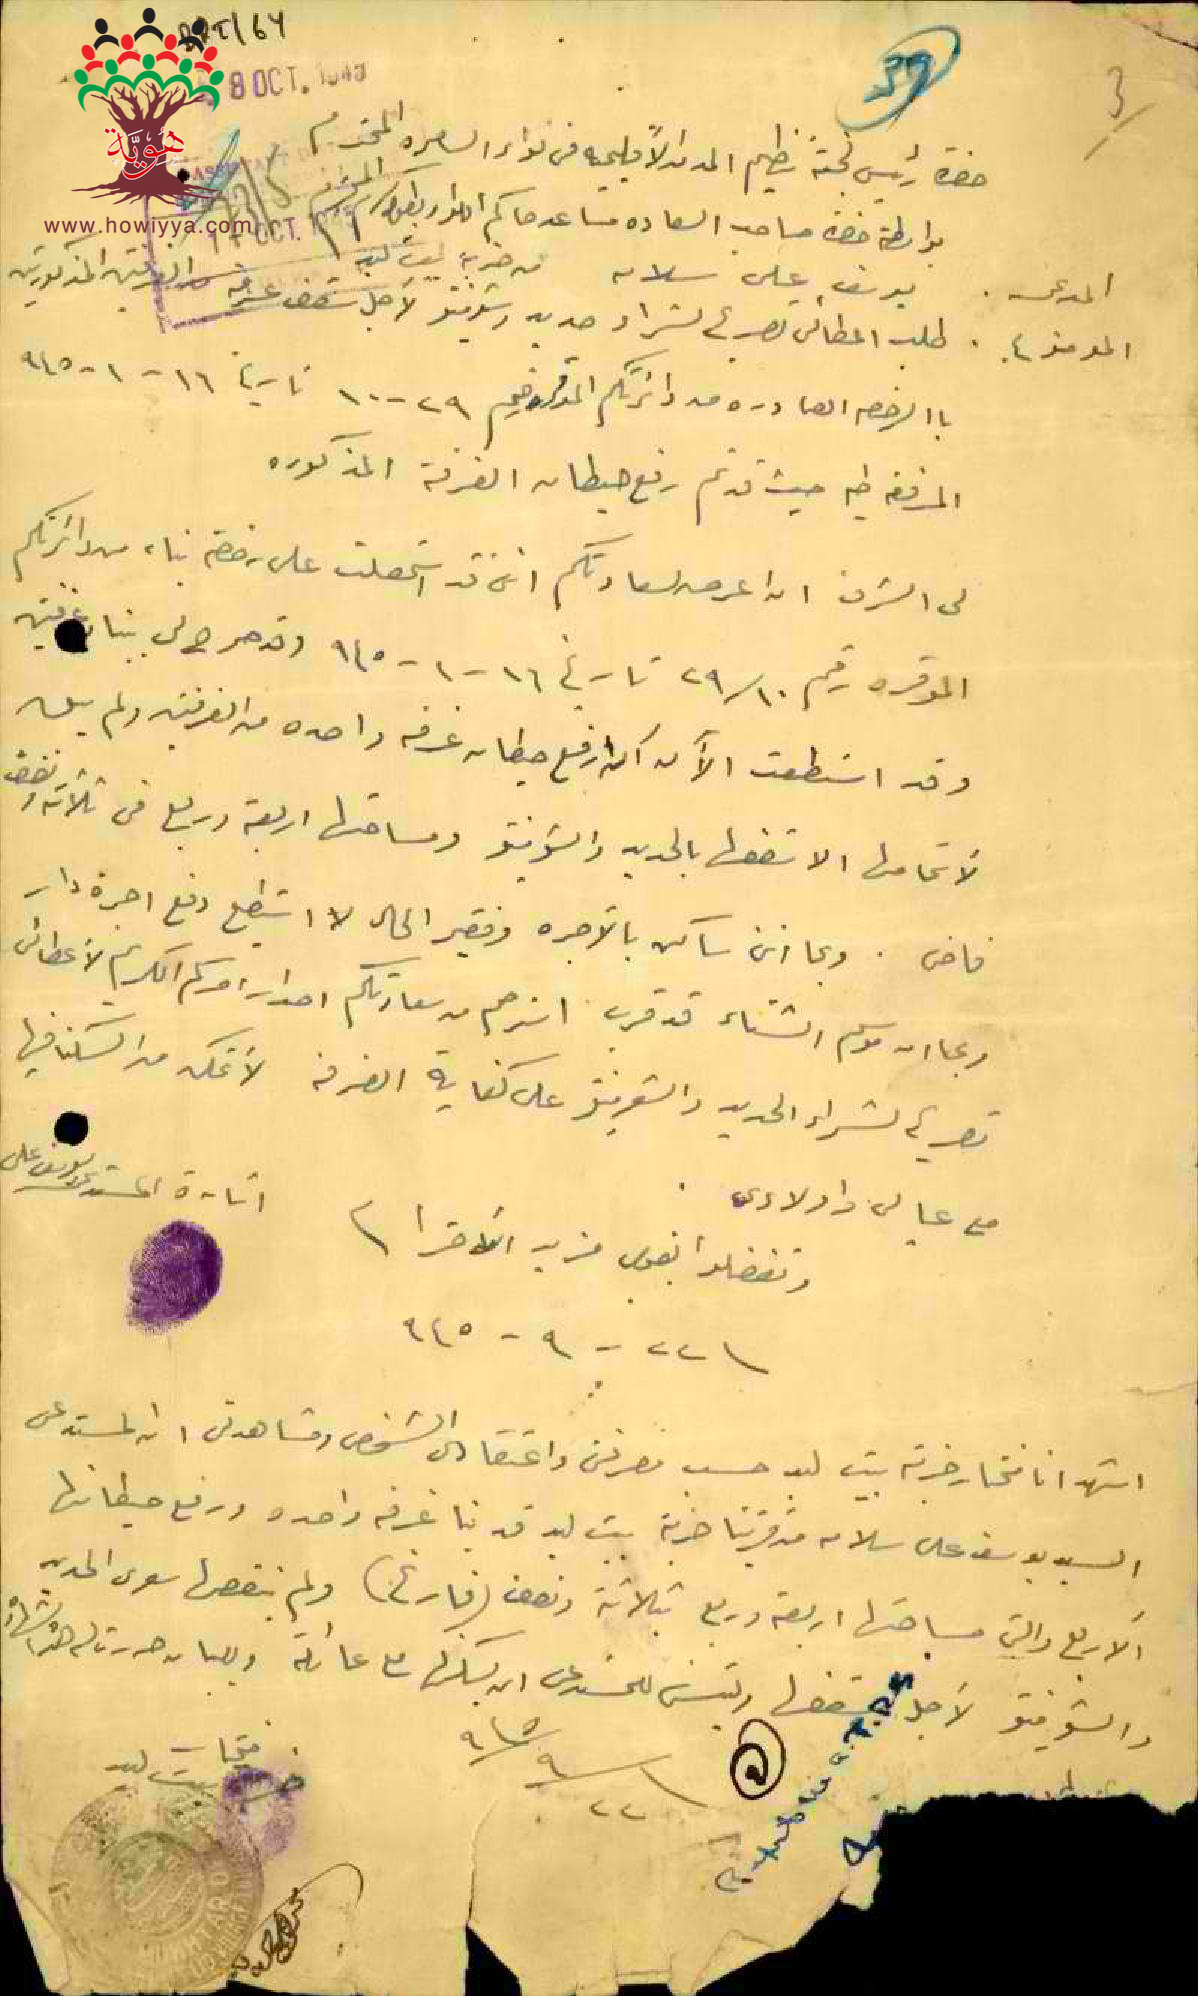 هُويَّة
www.howiyya.com
/64
8 OCT. 1945
39
3
حضرة رئيس لجنة تنظيم المدن الأقليمية في لواء السامره المحترم
بواسطة حضرة صاحب السعاده مساعد حاكم لواء
المستدعي . يوسف علي سلامه من خربة بيت ليد
OCT.
الموضوع . طلب اعطائي تصريح لشراء حديد وشمينتو لأجل سقف غرفه من الغرفتين المذكورتين
باالرخصه الصادره من دائرتكم الموقره رقم ٢٩-١٠ تاريخ ١٦-١-٩٤٥
المرفقه طيه حيث قد تم رفع حيطان الغرفة المذكوره
لي الشرف ان اعرض لسعادتكم انني قد استحصلت على رخصة بناء من دائرتكم
الموقره رقم ٢٩/١٠ تاريخ ١٦-١-٩٤٥ وقد صرح لي ببناء غرفتين
وقد استطعت الآن ان ارفع حيطان غرفه واحده من الغرفتين ولم يبق
لأتمامها الا سقفها بالحديد والشمينتو ومساحتها اربعة وربع في ثلاثة ونصف
فاضي . وبما انني ساكن بالأجره وفقير الحال لا استطيع دفع اجرة دار
وبما ان موسم الشتاء قد قرب استرحم من سعادتكم اصدار امركم الكريم لأعطائي
تصريح لشراء الحديد والشمينتو على كفاية الغرفه لأتمكن من السكنا فيها
مع عيالي واولادي .
وتفضلوا بقبول مزيد الاحترام
اشارة المستدعي يوسف علي
٢٢-٩-٩٤٥
اشهد انا مختار خربة بيت ليد حسب معرفتي واعتقادي الشخصي ومشاهدتي ان المستدعي
السيد يوسف علي سلامه من قريتنا خربة بيت ليد قد بنا غرفه واحده ورفع حيطانها
الاربع والتي مساحتها اربعه وربع بثلاثة ونصف (فارغ) ولم ينقصها سوى الحديد
والشمينتو لأجل سقفها وليتسنى للمستدعي ان يسكنها مع عائلته وللبيان حررت له هذه الشهادة
٢٢/٩/٩٤٥
مختار
خربة بيت ليد